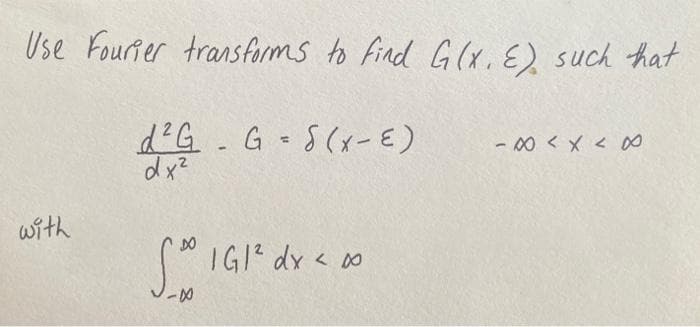 Use Fourier transforms to find G(x, ε) such that
d²G/dx² - G = δ(x-ε)   -∞ < x < ∞
with
∫_{-∞}^{∞} |G|² dx < ∞